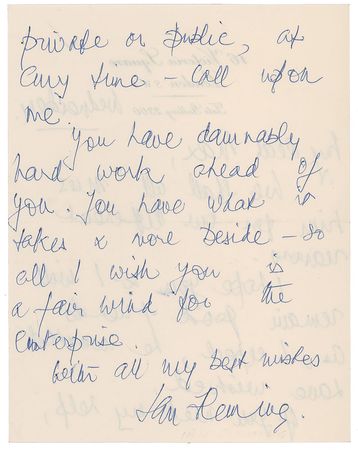 private or public, at
any time – call upon
me.
You have damnably
hard work ahead of
you. You have what it
takes & more beside – so
all I wish you is
a fair wind for the
enterprise.
With all my best wishes
Ian Fleming.